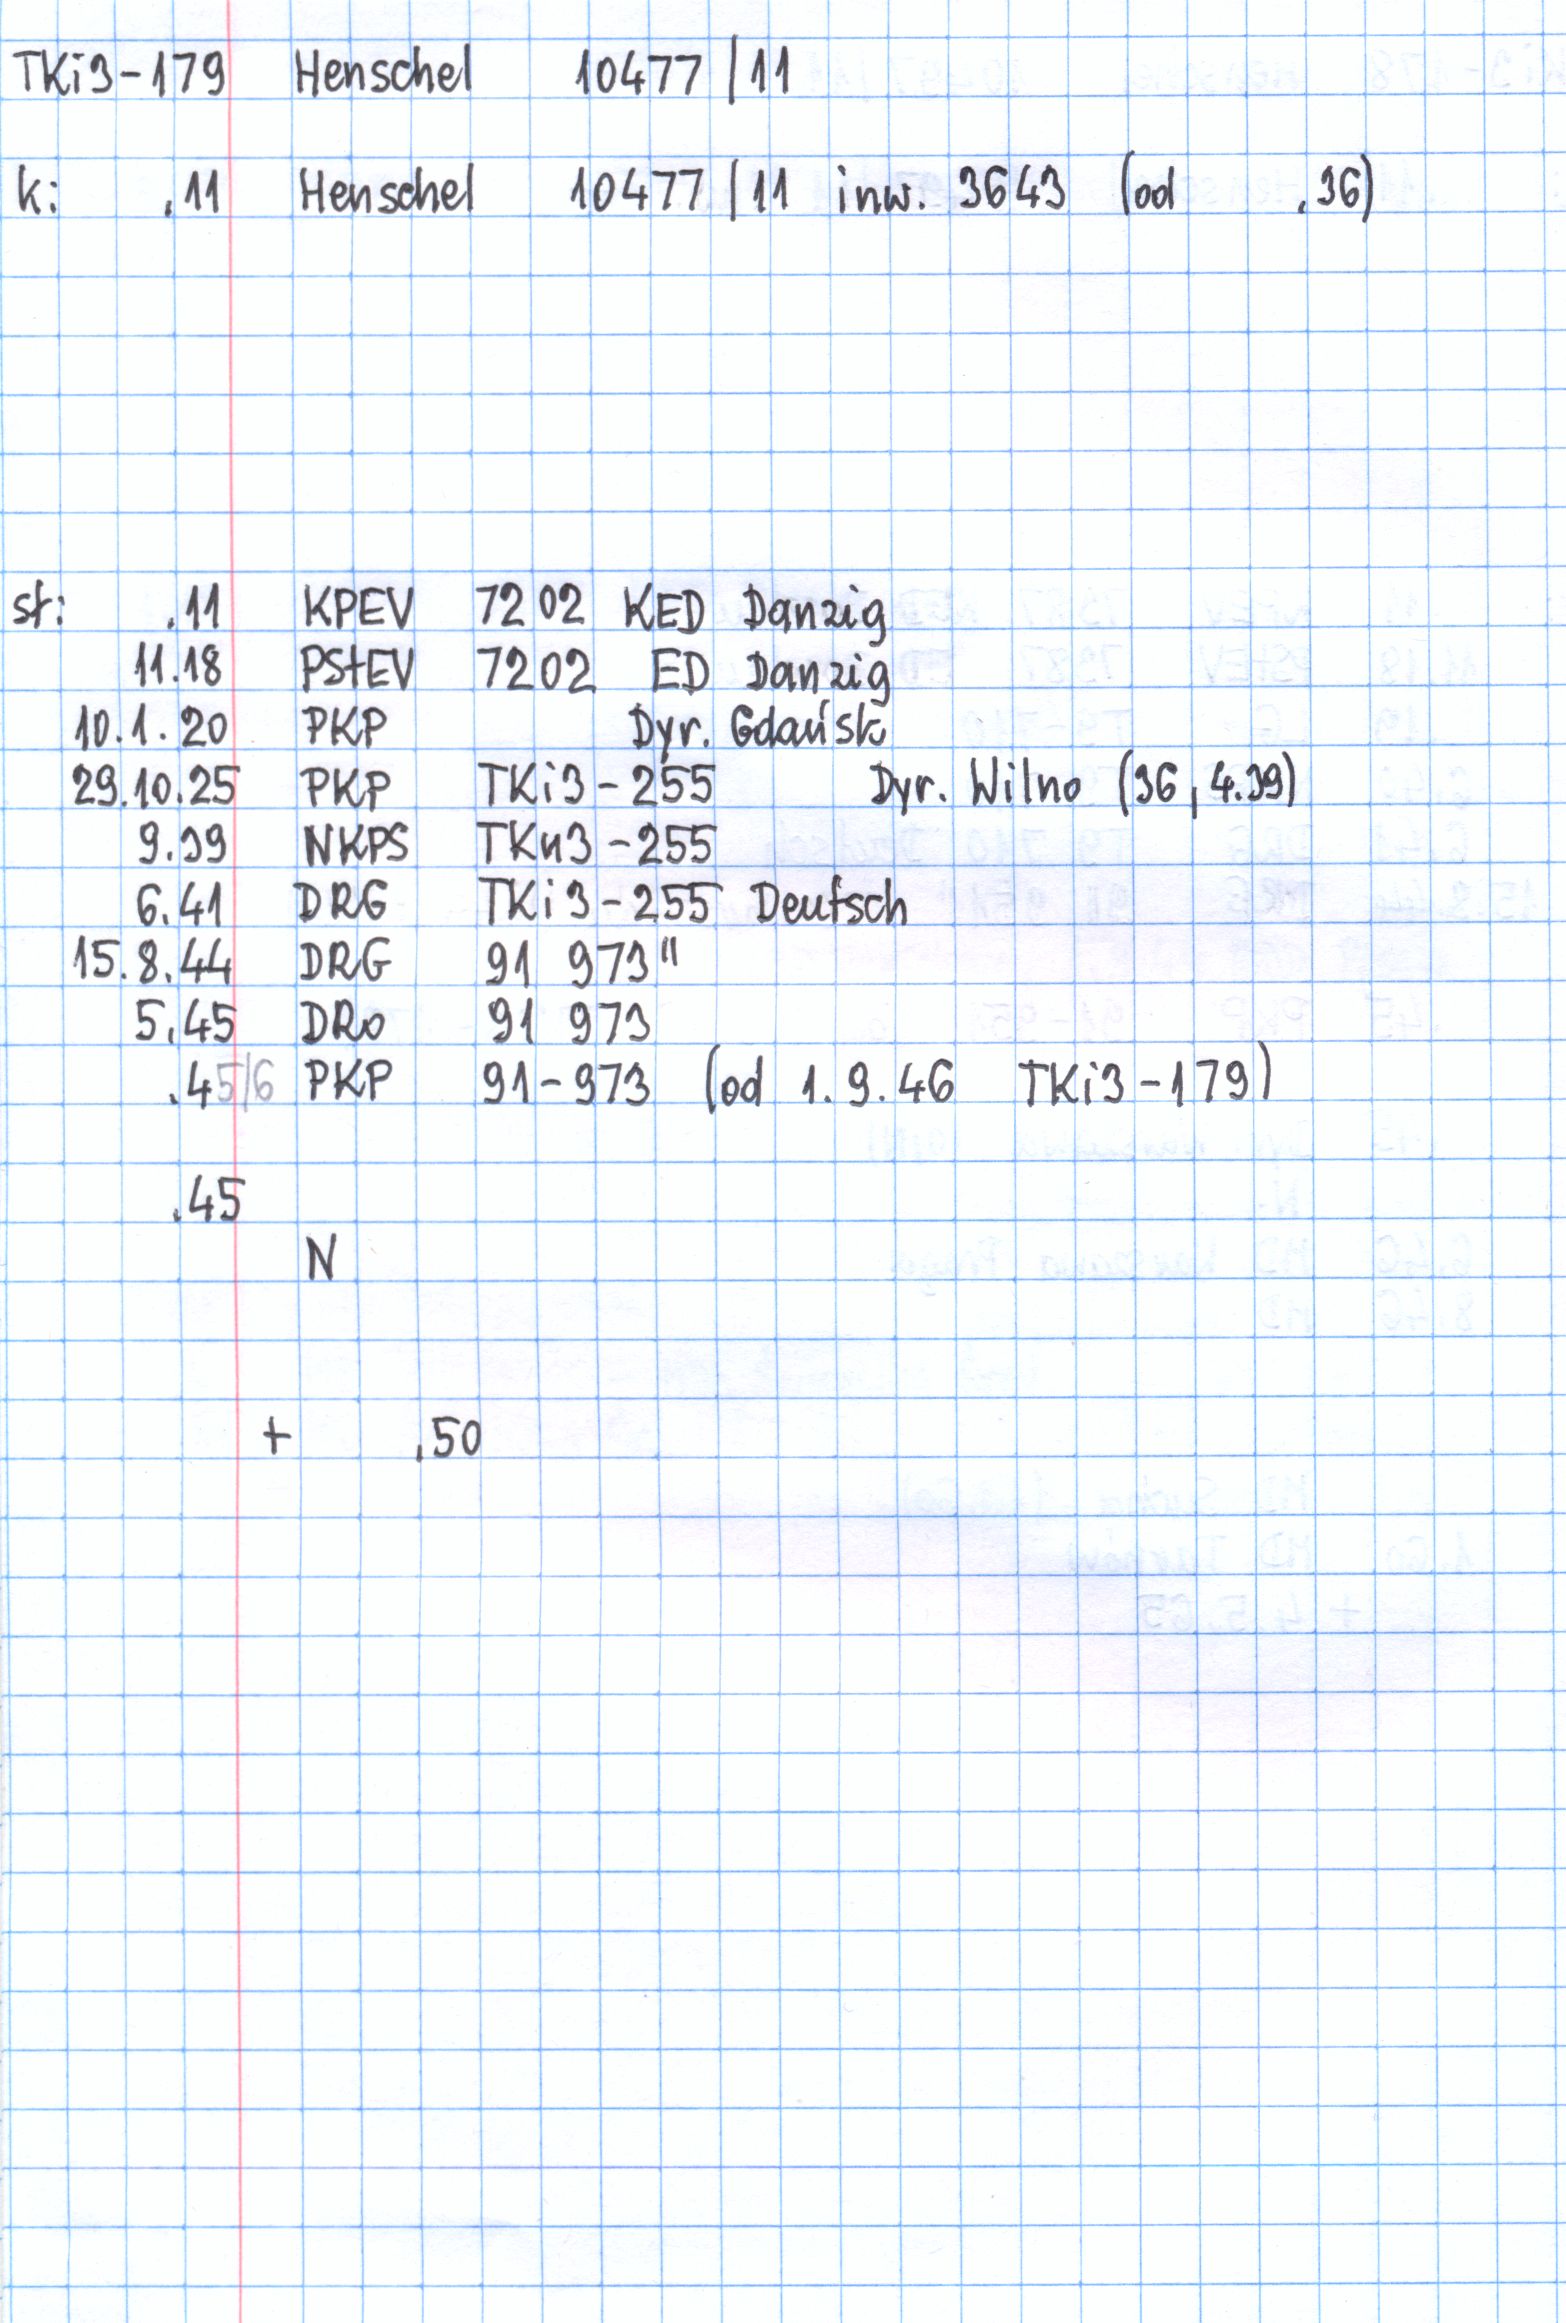 TKi3-179 Henschel 10477/11
k: .11 Henschel 10477/11 inw. 3643 (od .36)
st: .11 KPEV 7202 KED Danzig
11.18 PStEV 7202 ED Danzig
10.1.20 PKP Dyr. Gdańsk
29.10.25 PKP TKi3-255 Dyr. Wilno (36, 4.39)
9.39 NKPS TKu3-255
6.41 DRG TKi3-255 Deutsch
15.8.44 DRG 91 973"
5.45 DRo 91 973
.45/6 PKP 91-973 (od 1.9.46 TKi3-179)
.45
N
+ .50